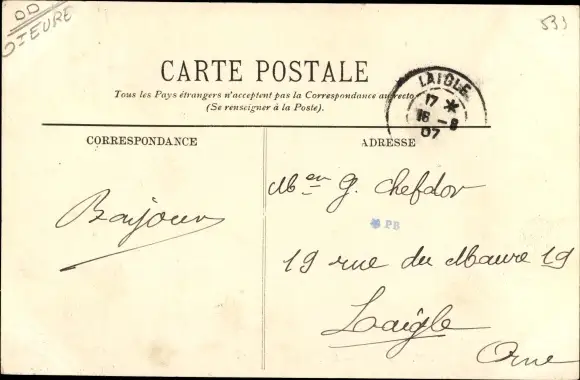 OD
Dt EURE
533
CARTE POSTALE
Tous les Pays étrangers n'acceptent pas la Correspondance au recto
(Se renseigner à la Poste).
LAIGLE
17 *
16 - 8
07
CORRESPONDANCE
ADRESSE
Bonjour
Men G. Chefdor
PB
19 rue du Maure 19
Laigle
Orne